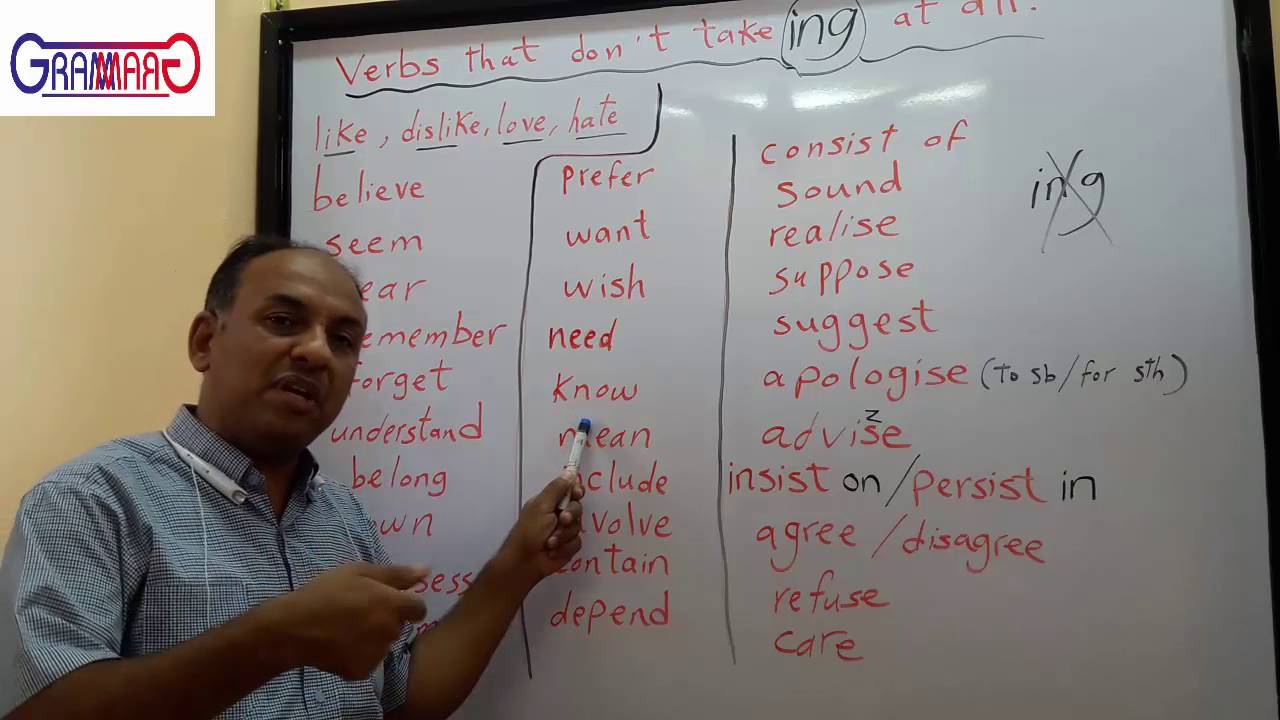 GRAMMARG
Verbs that don't take ing at all.
like, dislike, love, hate
believe
seem
understand
belong
prefer
want
wish
need
know
mean
depend
consist of
sound
realise
suppose
suggest
apologise (to sb/for sth)
z
advise
insist on/persist in
agree/disagree
refuse
care
ing